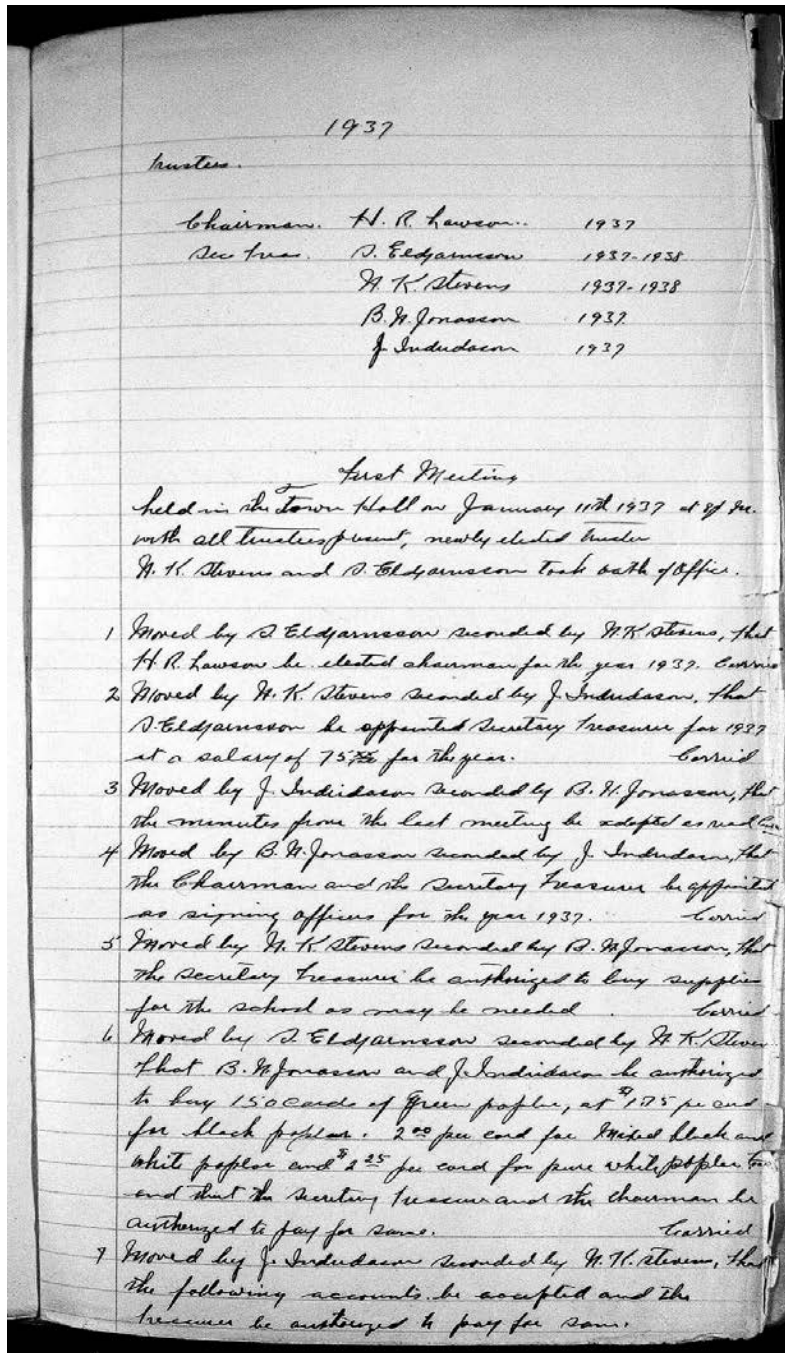 1937
Trustees.
Chairman. H. R. Lawson. 1937
Sec Treas. S. Eldjarnsson 1937-1938
N. K Stevens 1937-1938
B. N. Jonasson 1937
J. Indridason 1937
First Meeting
held in the Town Hall on January 11th 1937 at 8 p.m.
with all trustees present, newly elected trustee
N. K. Stevens and S. Eldjarnsson took oath of Office.
1 Moved by S Eldjarnsson seconded by N. K Stevens, that
H R. Lawson be elected chairman for the year 1937. Carried
2 Moved by N. K. Stevens seconded by J. Indridason, that
S. Eldjarnsson be appointed Secretary Treasurer for 1937
at a salary of 75 xx/100 for the year. Carried
3 Moved by J. Indridason seconded by B. N. Jonasson, that
the minutes from the last meeting be adopted as read
4 Moved by B. N. Jonasson seconded by J. Indridason, that
the Chairman and the Secretary Treasurer be appointed
as signing officers for the year 1937. Carried
5 Moved by N. K Stevens seconded by B. N Jonasson, that
the secretary treasurer be authorized to buy supplies
for the school as may be needed. Carried
6 Moved by S. Eldjarnsson seconded by N. K. Steven
that B. N Jonasson and J. Indridason be authorized
to buy 150 cords of Green poplar, at $1.75 per cord
for black poplar. 2 00 per cord for Mixed black and
white poplar and $2 25 per cord for pure white poplar
and that the secretary treasure and the chairman be
authorized to pay for same. Carried
7 Moved by J. Indridason seconded by N. K. Stevens, that
the following accounts be accepted and the
treasurer be authorized to pay for same.